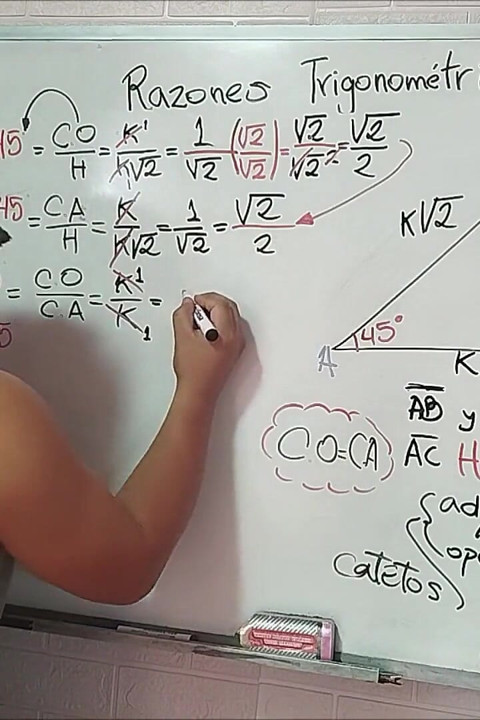 Razones Trigonométr
45 = CO/H = K1/K√2 = 1/√2 (√2/√2) = √2/√2² = √2/2
45 = CA/H = K/K√2 = 1/√2 = √2/2
= CO/CA = K1/K1 =
K√2
45°
A
K
AB y
C.O=CA
AC H
ad
op
catetos